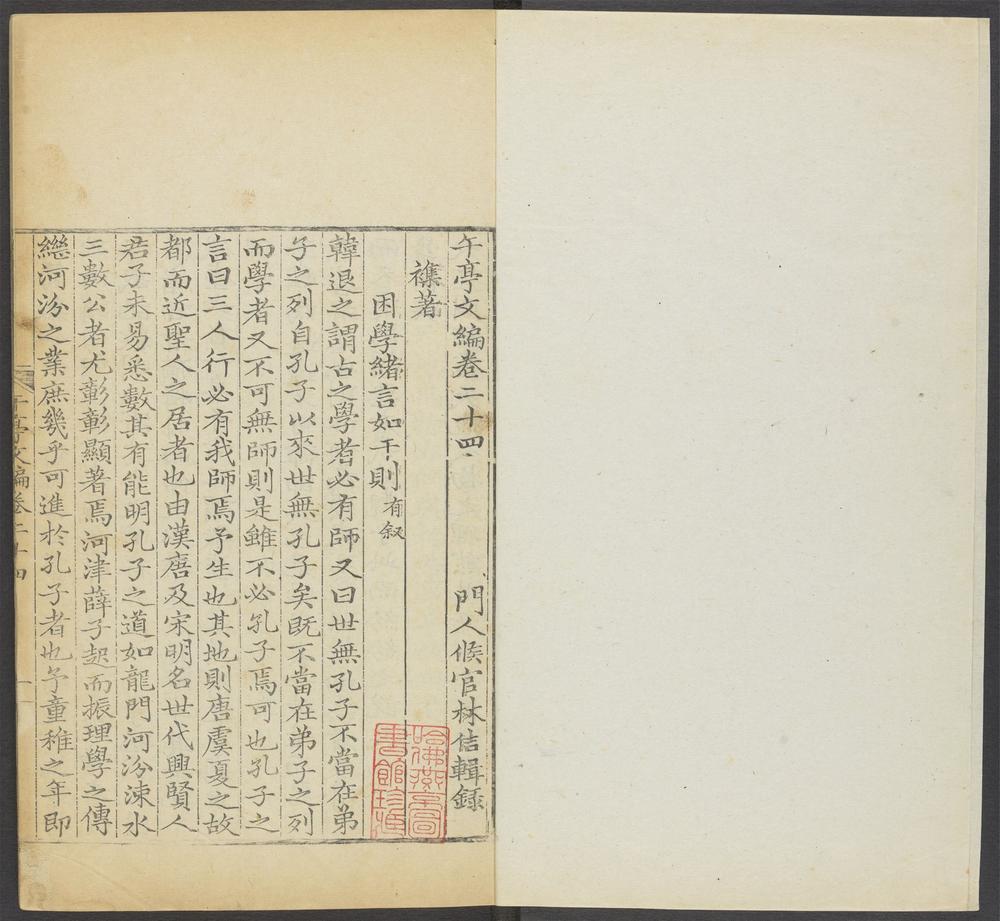 午亭文編卷二十四 門人候官林佶輯錄
襍著
困學緒言如干則 有叙
韓退之謂古之學者必有師又曰世無孔子不當在弟
子之列自孔子以來世無孔子矣既不當在弟子之列
而學者又不可無師則是雖不必孔子焉可也孔子之
言曰三人行必有我師焉予生也其地則唐虞夏之故
都而近聖人之居者也由漢唐及宋明名世代興賢人
君子未易悉數其有能明孔子之道如龍門河汾涑水
三數公者尤彰彰顯著焉河津薛子起而振理學之傳
繼河汾之業庶幾乎可進於孔子者也予童稚之年即
午亭文編卷二十四 一
哈佛燕京圖書館珍藏